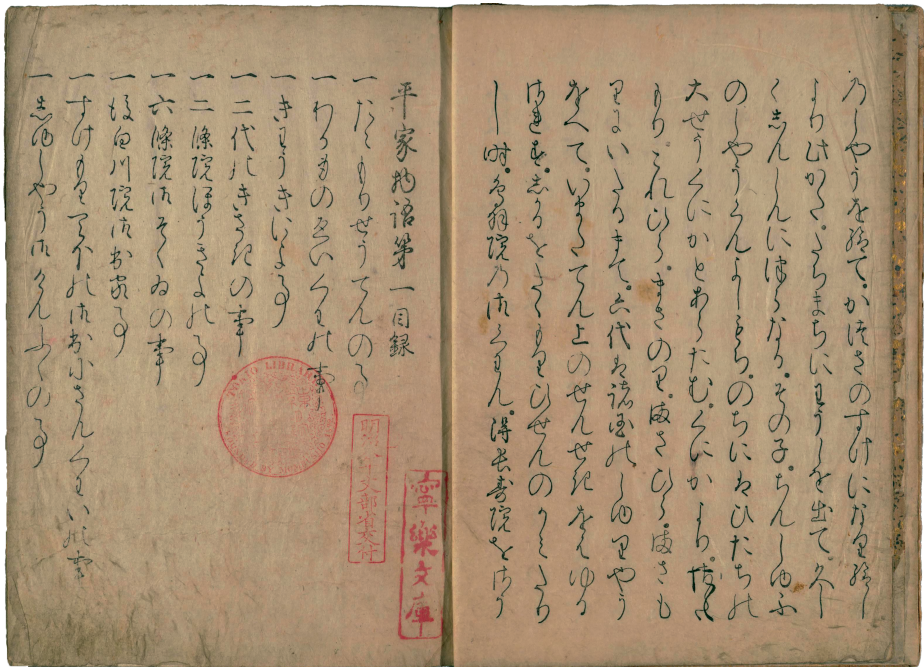 のしやうを給て。かつさのすけになり給し
より此かた。たちまちにわうしを出て。久し
くしんしんにつらなる。その子。ちんしゆふ
のしやうくんよしもち。のちにはひたちの
大せうくにかとあらたむ。くにかより。
もり。これひら。まさのり。まさひら。まさも
りにいたるまて。六代は諸国のしゆりやう
をへて。いまたてん上のせんせきをはゆる
されす。しかるをたゝもりひせんのかみたり
し時。鳥羽院の御くわん。得長寿院をさう
平家物語第一目録
一たゝもりせうてんの事
一わかものゑいくわの事
一きわうきによ事
一二代のきさきの事
一二條院ほうきよの事
一六條院御そくゐの事
一後白川院御出家事
一すけもり天下の御出にさんくわいの事
一しゆしやう御けんふくの事
TOKYO LIBRARY
文部省交付
寧樂文庫